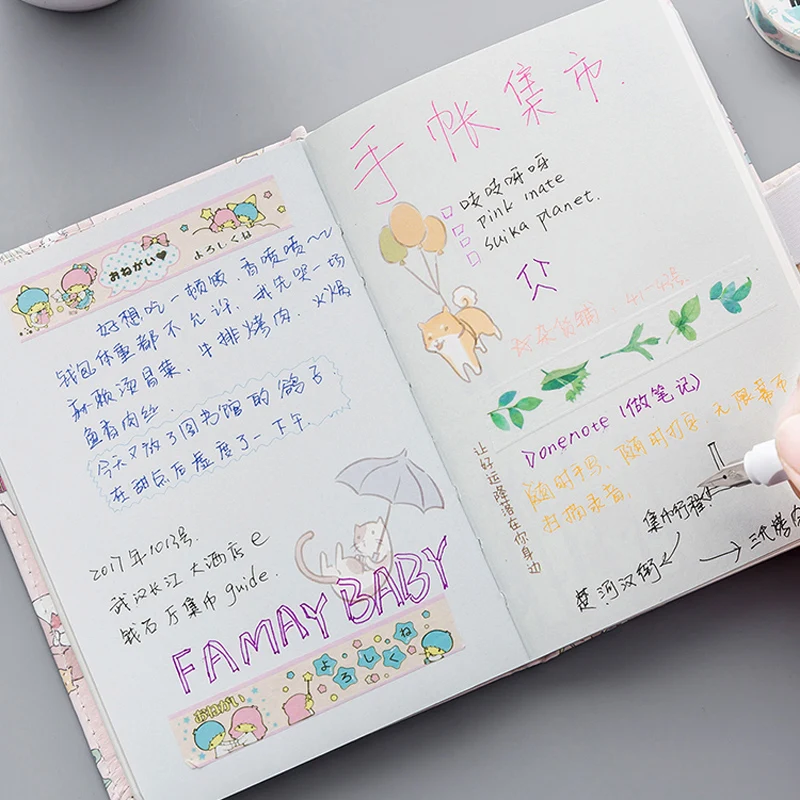 おねがい♥
よろしくね
好想吃一顿饭，香喷喷~~
钱包体重都不允许，我先哭一场
麻辣烫冒菜，牛排烤肉，火锅
鱼香肉丝.
今天又放了图书馆的鸽子
在甜点店虚度了一下午.
2017年10月3号.
武汉长江大酒店e
钱石厅集市guide.
FAMAY BABY
よろしくね
おねがい
手帐集市.
吱吱呀呀
pink mate
suika planet.
杂货铺
1>onenote(做笔记)
随时手写,随时打字,无限幕布
扫描录音.
让好运降落在你身边
集市行程
楚河汉街
三代烤肉